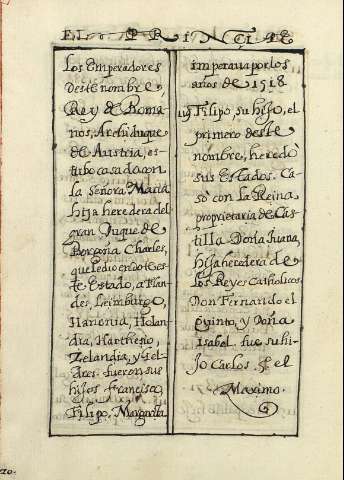 EL PRINCIPE
los Emperadores
deste nombre,
Rey de Roma-
nos, Archiduque
de Austria, es-
tubo casado con
la señora Maria
hija heredera del
gran Duque de
Borgoña Charles,
que le dio en dote es-
te Estado, a Flan-
des, Leimburge,
Hanonia, Holan-
dia, Harthesio,
Zelandia, y Gel-
dres. fueron sus
hijos francisco,
Filipo, Margarita
imperaua por los
años de 1518
Filipo, su hijo, el
primero deste
nombre, heredò
sus Estados. Ca-
sò con la Reina,
proprietaria de Cas-
tilla Doña Juana,
hija heredera de
los Reyes Catholicos
Don Fernando el
quinto, y Doña
Isabel. fue su hi-
jo Carlos. 5. el
Maximo.